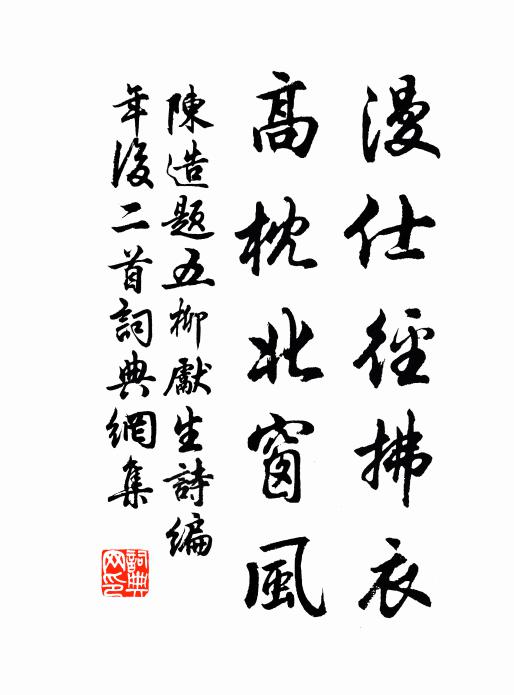 漫仕徑拂衣
高枕北窗風
陳造題五柳獻生詩編
年後二首詞典網集
詞典
网印